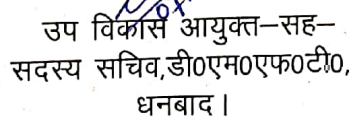 उप विकास आयुक्त–सह–
सदस्य सचिव,डी0एम0एफ0टी0,
धनबाद।